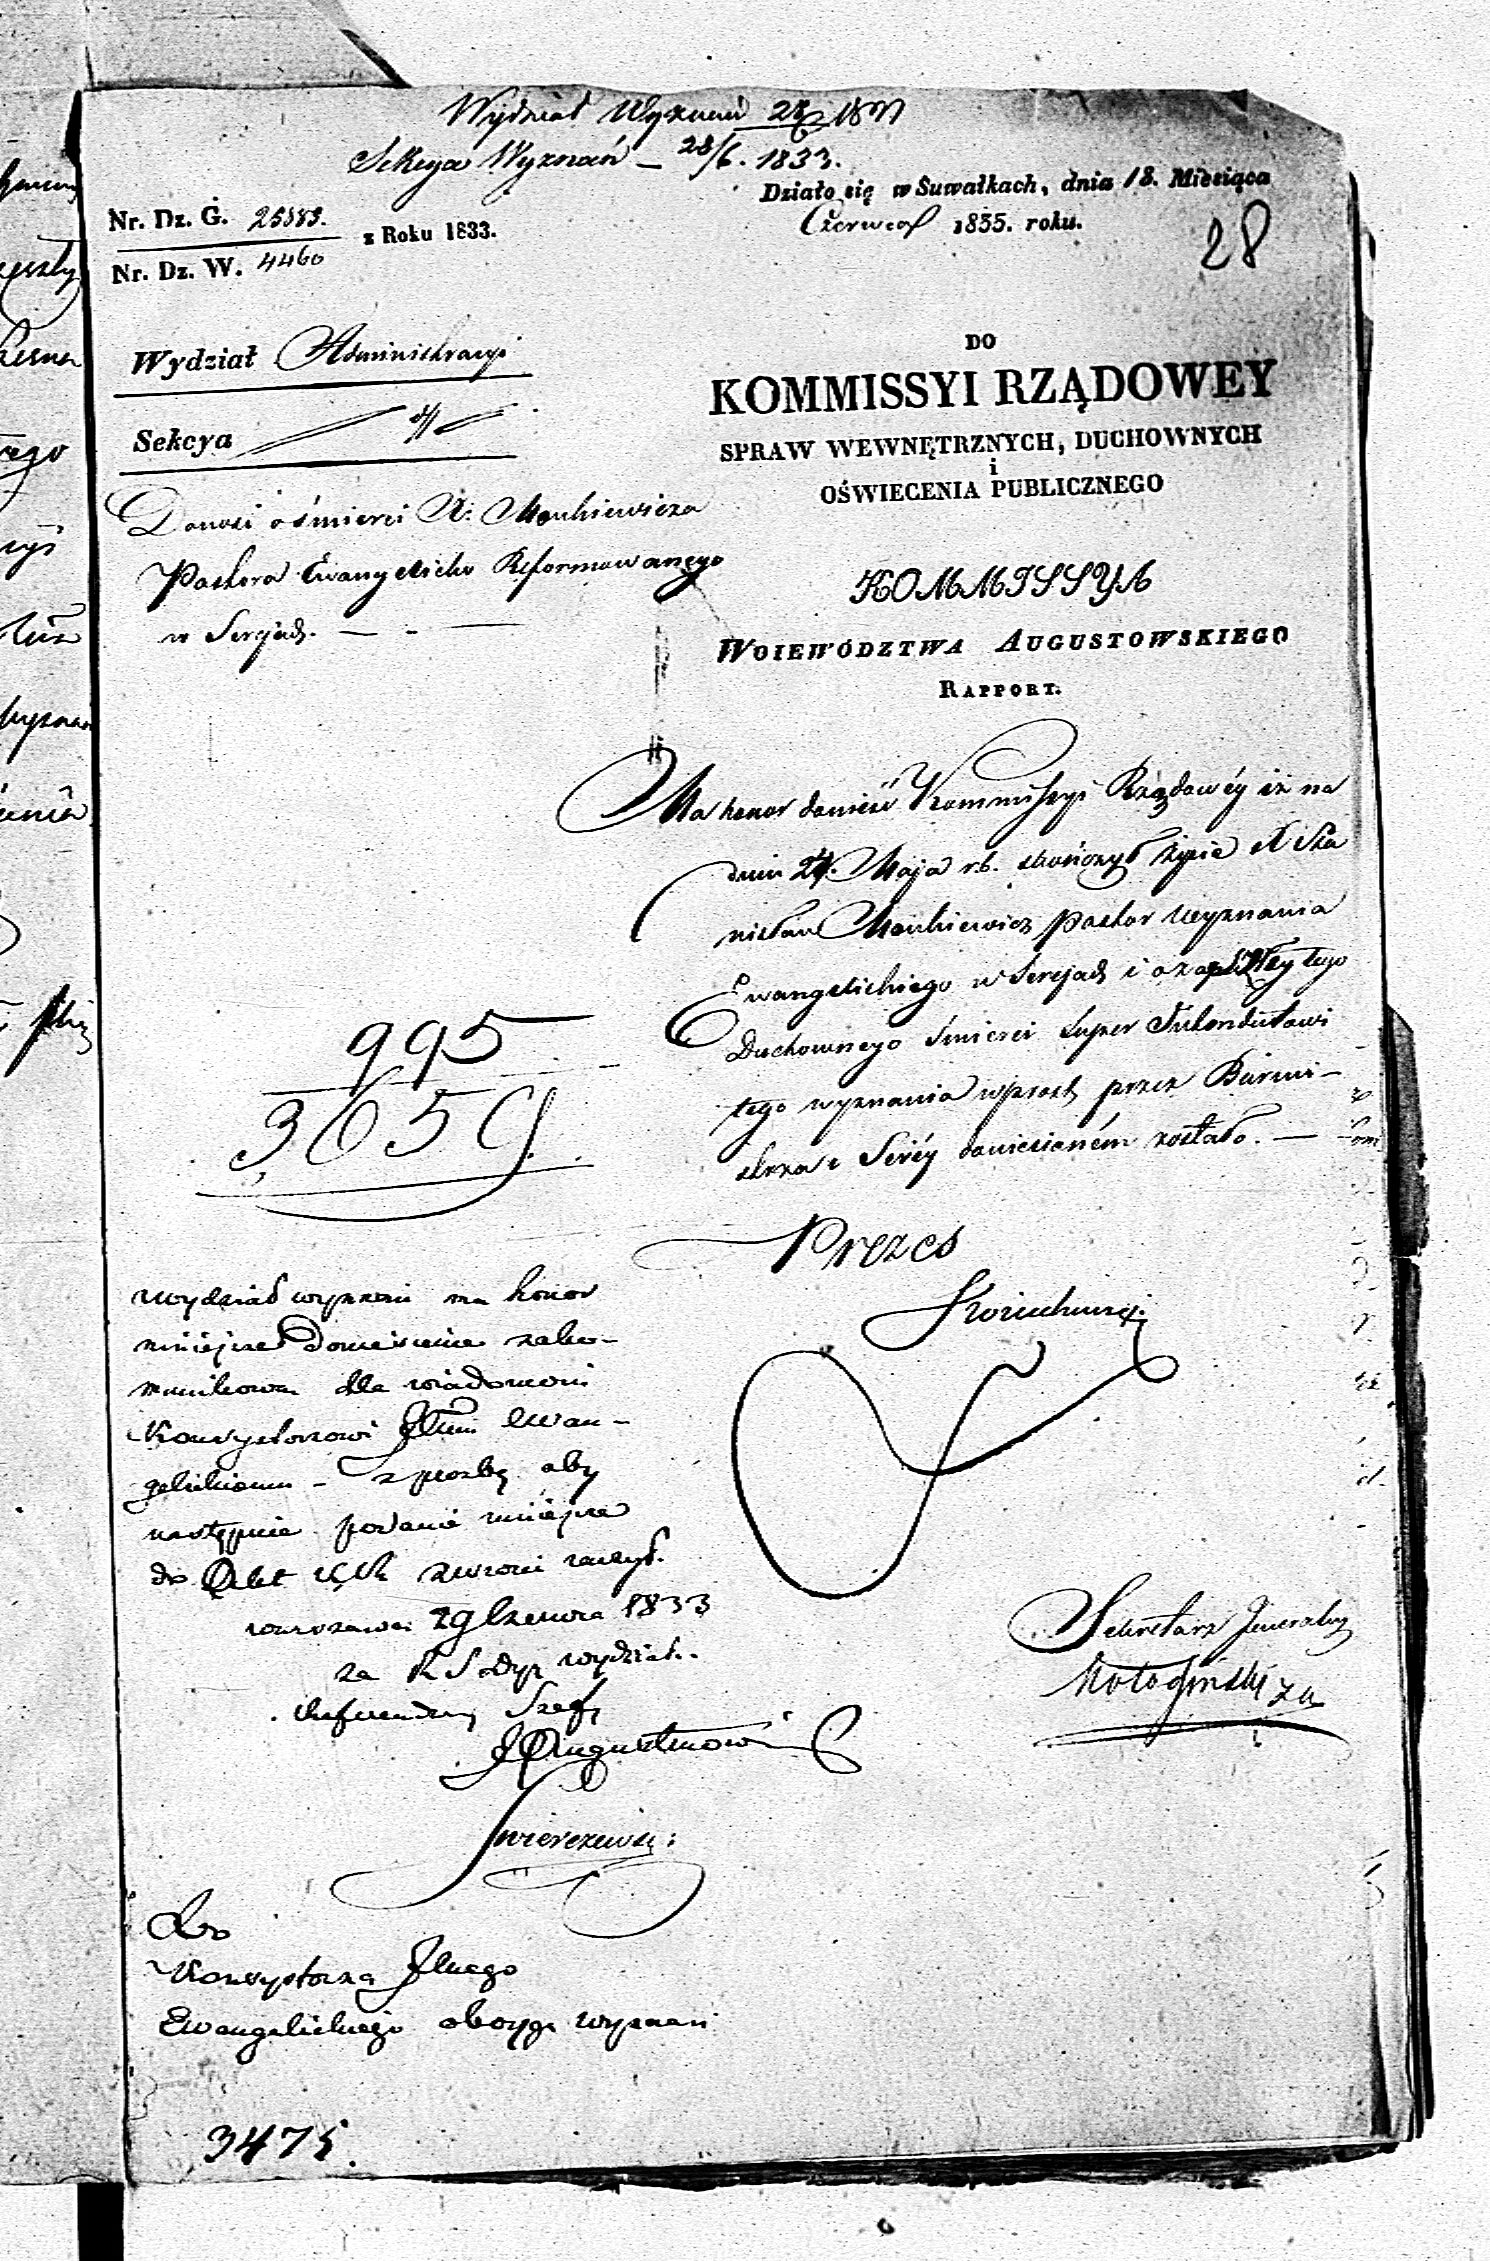 Wydział Wyznań 28/6 1833
Sekcya Wyznań – 28/6. 1833.
Działo się w Suwałkach, dnia 18. Miesiąca
Czerwca 1833. roku.
28
Nr. Dz. G. 25583.
z Roku 1833.
Nr. Dz. W. 4460
Wydział Administracyi
Sekcya
Donosi o śmierci X. Monkiewicza
Pastora Ewangelicko Reformowanego
w Serejach. — - —
DO
KOMMISSYI RZĄDOWEY
SPRAW WEWNĘTRZNYCH, DUCHOWNYCH
i
OŚWIECENIA PUBLICZNEGO
KOMMISSYA
WOIEWÓDZTWA AUGUSTOWSKIEGO
RAPPORT.
Ma honor donieść Kommissyi Rządowéy iż na
dniu 24. Maja r.b. skończył życie X Sta
nisław Monkiewicz Pastor wyznania
Ewangelickiego w Serejach i o zaszłey tego
Duchownego śmierci Super Intendutowi
tego wyznania wprost przez Burmi-
strza z Seréy doniesioném zostało. —
995
3659.
Prezes
Sekretarz Jeneralny
za
Wydział wyznań ma honor
niniejsze doniesienie zako-
munikować dla wiadomości
Konsystorzowi Jlnu Ewan-
gelickiemu – z prośbą aby
następnie podanie niniejsze
do Akt zwrócić raczył.
Warszawa 29 Czerwca 1833
za Dyr. Wydziału.
Referendarz Szef
J Augustinowicz
Swierczewski
Do
Konsystorza Jlnego
Ewangelickiego obojga wyznań
3475.